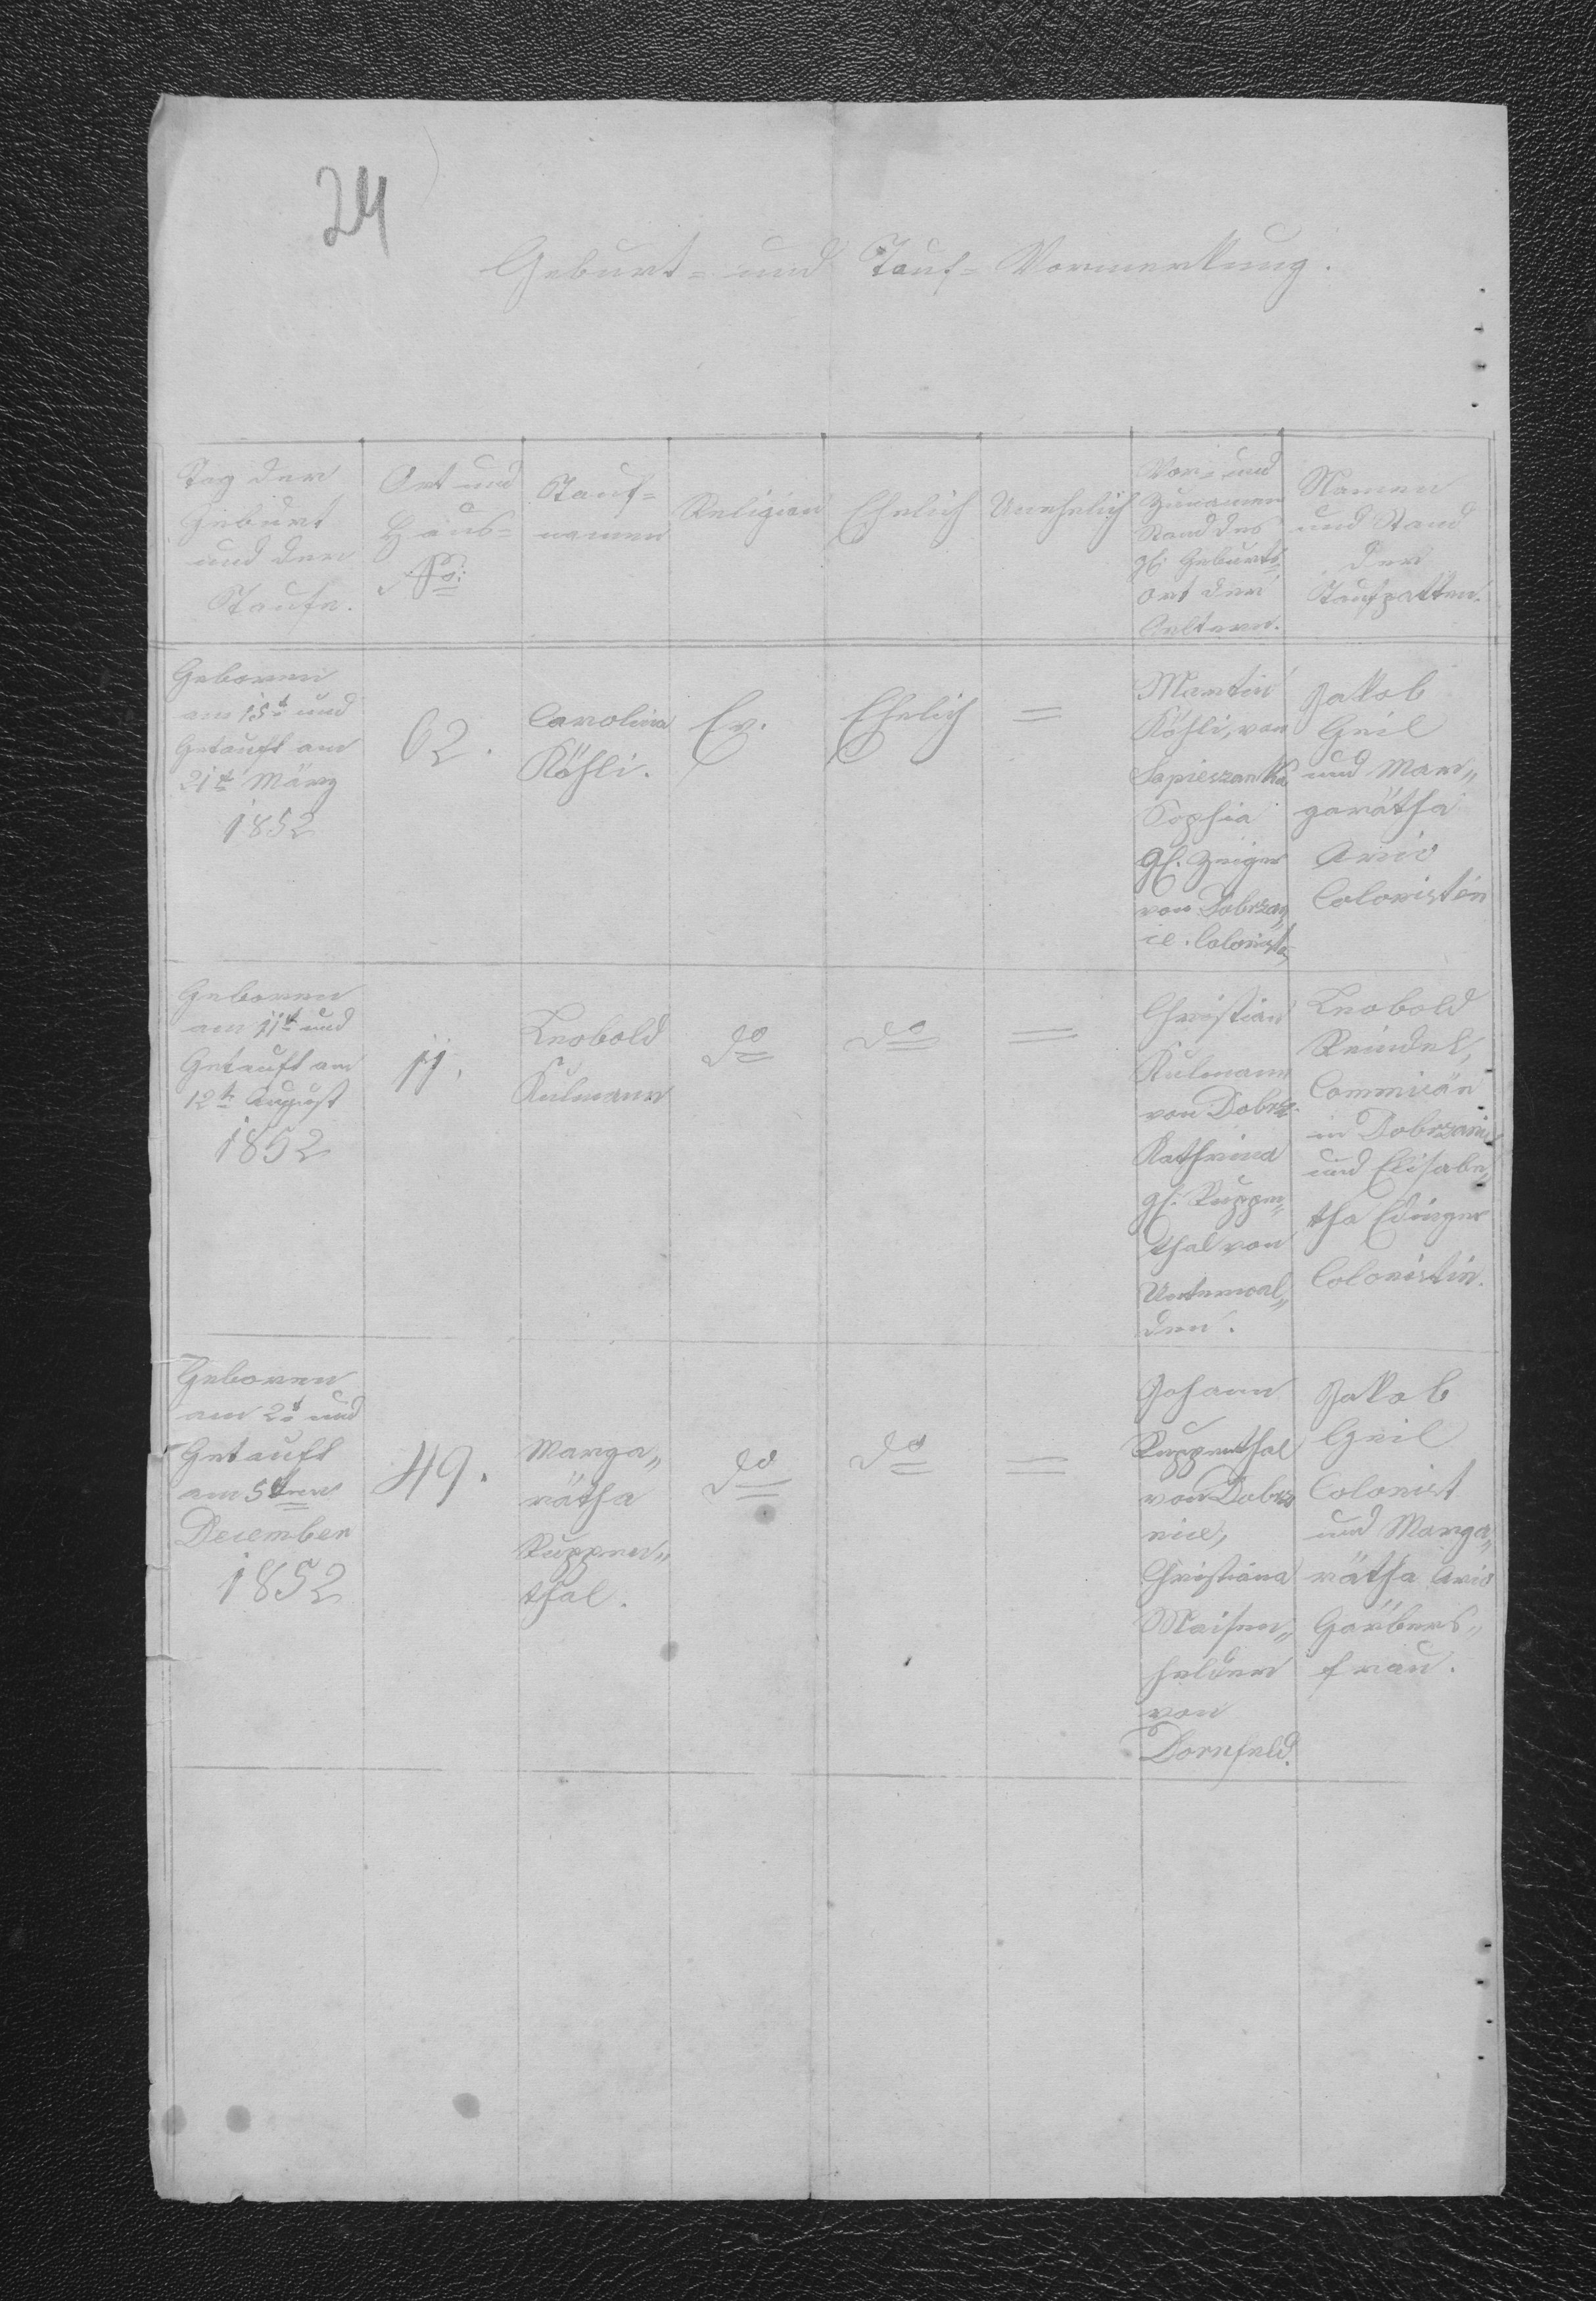 24
Geburt= und Tauf= Vormerkung.
Tag der
Geburt
und der
Taufe.
Ort und
Haus=
No:
Tauf=
namen
Religion
Ehelich
Unehelich
Vor= und
Zunamen
Stand des
gl. Geburts=
ort der
Aeltern.
Namen
und Stand
der
Taufpatten.
Geboren
am 15t und
Getauft am
21t März
1852
62.
Carolina
Köhli.
Ev.
Ehelich
=
Martin
Köhli, von
Sapieszanka
Sophia
gl. Zeiger
von Dobrzan„
ice. Coloniste
Jakob
Geil
und Mar„
garätha
Colonisten
Geboren
am 11t und
Getauft am
12t August
1852
11.
Leobold
Kulmann
do
do
=
Christian
Kulmann
von Dobrz.
Kathrina
gl. Ruppen„
thal von
Unterwal„
den.
Leobold
Reindel,
in Dobrzani
und Elisabe„
tha Edinger
Colonistin.
Geboren
am 2t und
Getauft
am 5ten
December
1852
49.
Marga„
rätha
Ruppen„
thal.
do
do
=
Johann
Ruppenthal
von Dobrza
nice,
Christiana
Maisen„
helder
von
Dornfeld.
Jakob
Geil
Colonist
und Marga„
rätha
Gärbers„
frau.